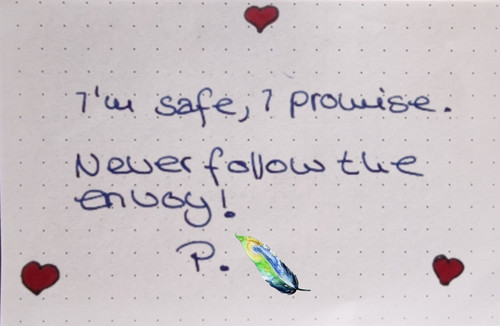 I'm safe, I promise.
Never follow the
envoy!
P.